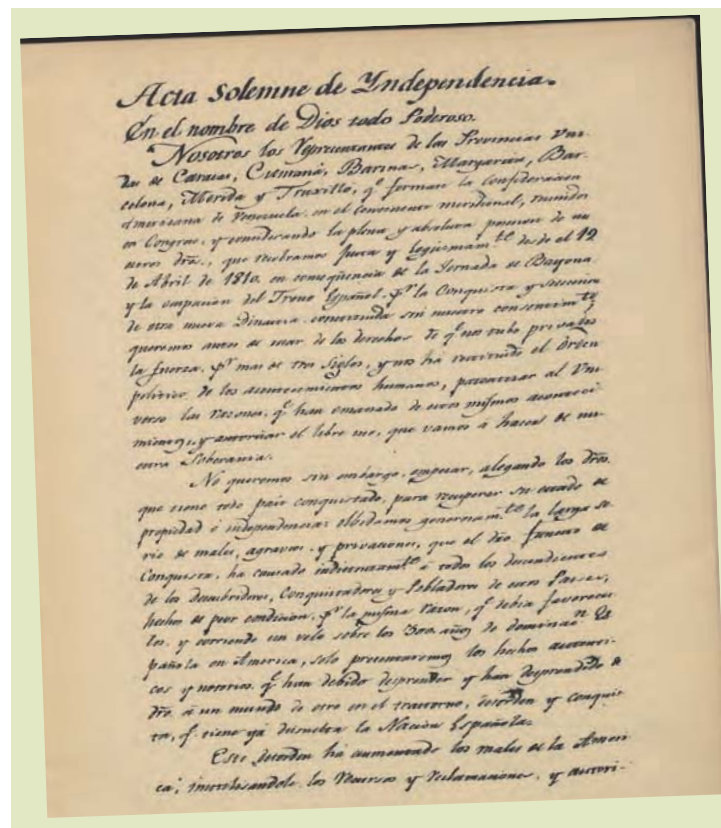 Acta Solemne de Yndependencia.
En el nombre de Dios todo Poderoso.
Nosotros los Representantes de las Provincias Uni-
das de Caracas, Cumaná, Barinas, Margarita, Bar-
celona, Merida y Truxillo, qᵉ forman la Confederacion
Americana de Venezuela en el continente meridional, reunidos
en Congreso, y considerando la plena y absoluta posesion de nu
estros dros., que recobramos justa y legitimamᵗᵉ desde el 19
de Abril de 1810, en conseqüencia de la Jornada de Bayona
y la ocupacion del Trono Español, pʳ la Conquista y sucesion
de otra nueva Dinastia constituida sin nuestro consentimᵗᵒ
queremos antes de usar de los derechos de qᵉ nos tubo privados
la fuerza, pʳ mas de tres Siglos, y nos ha restituido el órden
politico de los acontecimientos humanos, patentizar al Uni
verso las razones, qᵉ han emanado de estos mismos aconteci
mientos, y autorizan el libre uso, que vamos á hacer de nu
estra Soberania.
No queremos sin embargo, empezar, alegando los dros.
que tiene todo pais conquistado, para recuperar su estado de
propiedad é independencia: olbidamos generosamᵗᵉ la larga se
rie de males, agravios, y privaciones, que el dro. funesto de
Conquista, ha causado indistintamᵗᵉ á todos los descendientes
de los Descubridores, Conquistadores y Pobladores de estos Paises,
hechos de peor condicion, pʳ la misma razon, qᵉ debia favorecer
los, y corriendo un velo sobre los 300. años de dominaⁿ Es
pañola en America, solo presentaremos los hechos autenti-
cos y notorios, qᵉ han debido desprender y han desprendido de
dro. á un mundo de otro en el trastorno, desorden y conquis
ta, qᵉ tiene yá disuelta la Nacion Española.
Este desorden há aumentado los males de la Ameri
ca, inutilisandole los recursos y reclamaciones, y autori-